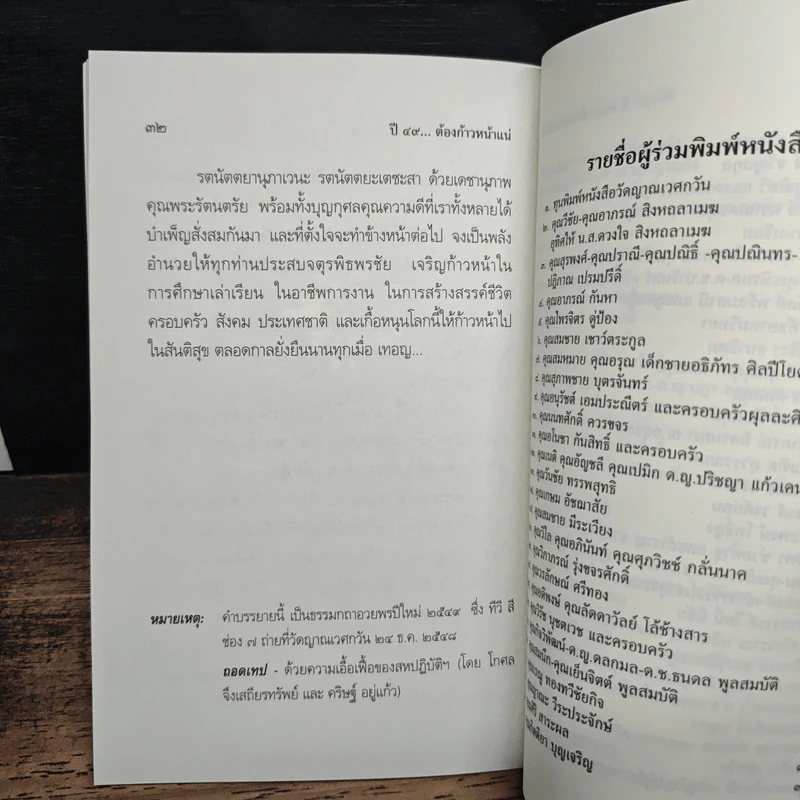 ๓๒
ปี ๔๙... ต้องก้าวหน้าแน่
รตนัตตยานุภาเวนะ รตนัตตยะเตชะสา ด้วยเดชานุภาพ
คุณพระรัตนตรัย พร้อมทั้งบุญกุศลคุณความดีที่เราทั้งหลายได้
บำเพ็ญสั่งสมกันมา และที่ตั้งใจจะทำข้างหน้าต่อไป จงเป็นพลัง
อำนวยให้ทุกท่านประสบจตุรพิธพรชัย เจริญก้าวหน้าใน
การศึกษาเล่าเรียน ในอาชีพการงาน ในการสร้างสรรค์ชีวิต
ครอบครัว สังคม ประเทศชาติ และเกื้อหนุนโลกนี้ให้ก้าวหน้าไป
ในสันติสุข ตลอดกาลยั่งยืนนานทุกเมื่อ เทอญ...
หมายเหตุ: คำบรรยายนี้ เป็นธรรมกถาอวยพรปีใหม่ ๒๕๔๙ ซึ่ง ทีวี สี
ช่อง ๗ ถ่ายที่วัดญาณเวศกวัน ๒๔ ธ.ค. ๒๕๔๘
ถอดเทป - ด้วยความเอื้อเฟื้อของสหปฏิบัติฯ (โดย โกศล
จึงเสถียรทรัพย์ และ คริษฐ์ อยู่แก้ว)
รายชื่อผู้ร่วมพิมพ์หนังสื
๑. ทุนพิมพ์หนังสือวัดญาณเวศกวัน
๒. คุณวีชัย-คุณอาภรณ์ สิงหถลาเมฆ
อุทิศให้ น.ส.ดวงใจ สิงหถลาเมฆ
๓. คุณสุรพงศ์-คุณปราณี-คุณปณิธิ์ -คุณปณินทร-
ปฏิภาณ เปรมปรีดิ์
๔. คุณอาภรณ์ กันหา
๕. คุณไพรจิตร ดู่ป้อง
๖. คุณสมชาย เชาว์ตระกูล
๗. คุณสมหมาย คุณอรุณ เด็กชายอธิภัทร ศิลปีโยด
๘. คุณสุภาพชาย บุตรจันทร์
๙. คุณอนุรัชต์ เอมประณีตร์ และครอบครัวผุลละศิ
คุณนนทศักดิ์ ควรขจร
คุณอโนชา กันสิทธิ์ และครอบครัว
คุณเนติ คุณอัญชลี คุณเปมิก ด.ญ.ปริชญา แก้วเคน
คุณวันชัย ทรรพสุทธิ
คุณเกษม อัชฌาสัย
คุณสมชาย มีระเวียง
คุณวิไล คุณอภินันท์ คุณศุภวิชช์ กลั่นนาค
คุณวิภาภรณ์ รุ่งขจรศักดิ์
วรลักษณ์ ศรีทอง
อดิพงษ์ คุณลัดดาวัลย์ โล้ช้างสาร
วิรัช นุชตเวช และครอบครัว
กิจวิพัฒน์-ด.ญ.ดลกมล-ด.ช.ธนดล พูลสมบัติ
สมนึก-คุณเย็นจิตต์ พูลสมบัติ
ทองทวีชัยกิจ
วีระประจักษ์
สาระผล
บุญเจริญ